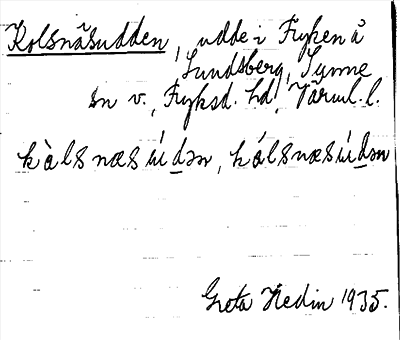 Kolsnäsudden, udde i Fryken å
Lundsberg, Sunne
sn v., Fryksd. hd, Värml. l.
kòlsnæsúdən, kólsnæsúdən
Greta Hedin 1935.